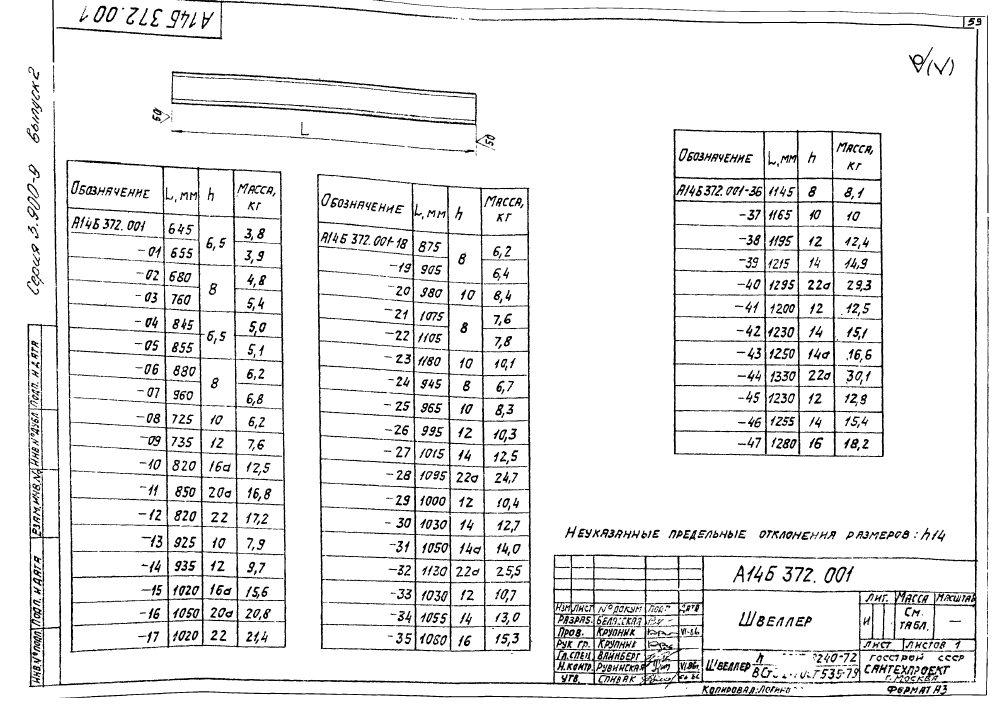 А14Б 372.001
59
Серия 3.900-9 выпуск 2
√(√)
50
L
50
Обозначение L, мм h Масса, кг
А14Б 372.001 645 6,5 3,8
-01 655 3,9
-02 680 8 4,8
-03 760 5,4
-04 845 6,5 5,0
-05 855 5,1
-06 880 8 6,2
-07 960 6,8
-08 725 10 6,2
-09 735 12 7,6
-10 820 16а 12,5
-11 850 20а 16,8
-12 820 22 17,2
-13 925 10 7,9
-14 935 12 9,7
-15 1020 16а 15,6
-16 1050 20а 20,8
-17 1020 22 21,4
Обозначение L, мм h Масса, кг
А14Б 372.001-18 875 8 6,2
-19 905 6,4
-20 980 10 8,4
-21 1075 8 7,6
-22 1105 7,8
-23 1180 10 10,1
-24 945 8 6,7
-25 965 10 8,3
-26 995 12 10,3
-27 1015 14 12,5
-28 1095 22а 24,7
-29 1000 12 10,4
-30 1030 14 12,7
-31 1050 14а 14,0
-32 1130 22а 25,5
-33 1030 12 10,7
-34 1055 14 13,0
-35 1080 16 15,3
Обозначение L, мм h Масса, кг
А14Б 372.001-36 1145 8 8,1
-37 1165 10 10
-38 1195 12 12,4
-39 1215 14 14,9
-40 1295 22а 29,3
-41 1200 12 12,5
-42 1230 14 15,1
-43 1250 14а 16,6
-44 1330 22а 30,1
-45 1230 12 12,8
-46 1255 14 15,4
-47 1280 16 18,2
Неуказанные предельные отклонения размеров: h14
А14Б 372.001
Швеллер
Лит. Масса Масштаб
И См. табл. —
Лист Листов 1
Изм Лист № докум Подп Дата
Разраб.
Пров. Крупник VI-86
Рук гр. Крупник
Гл.спец Вайнберг
Н.контр. Рувинская VI 86
Утв. Спивак
Швеллер 240-72
535-79
Госстрой СССР
Сантехпроект
г. Москва
Копировал:
Формат А3
Инв.№ подл. Подп. и дата Взам.инв.№ Инв № дубл Подп. и дата